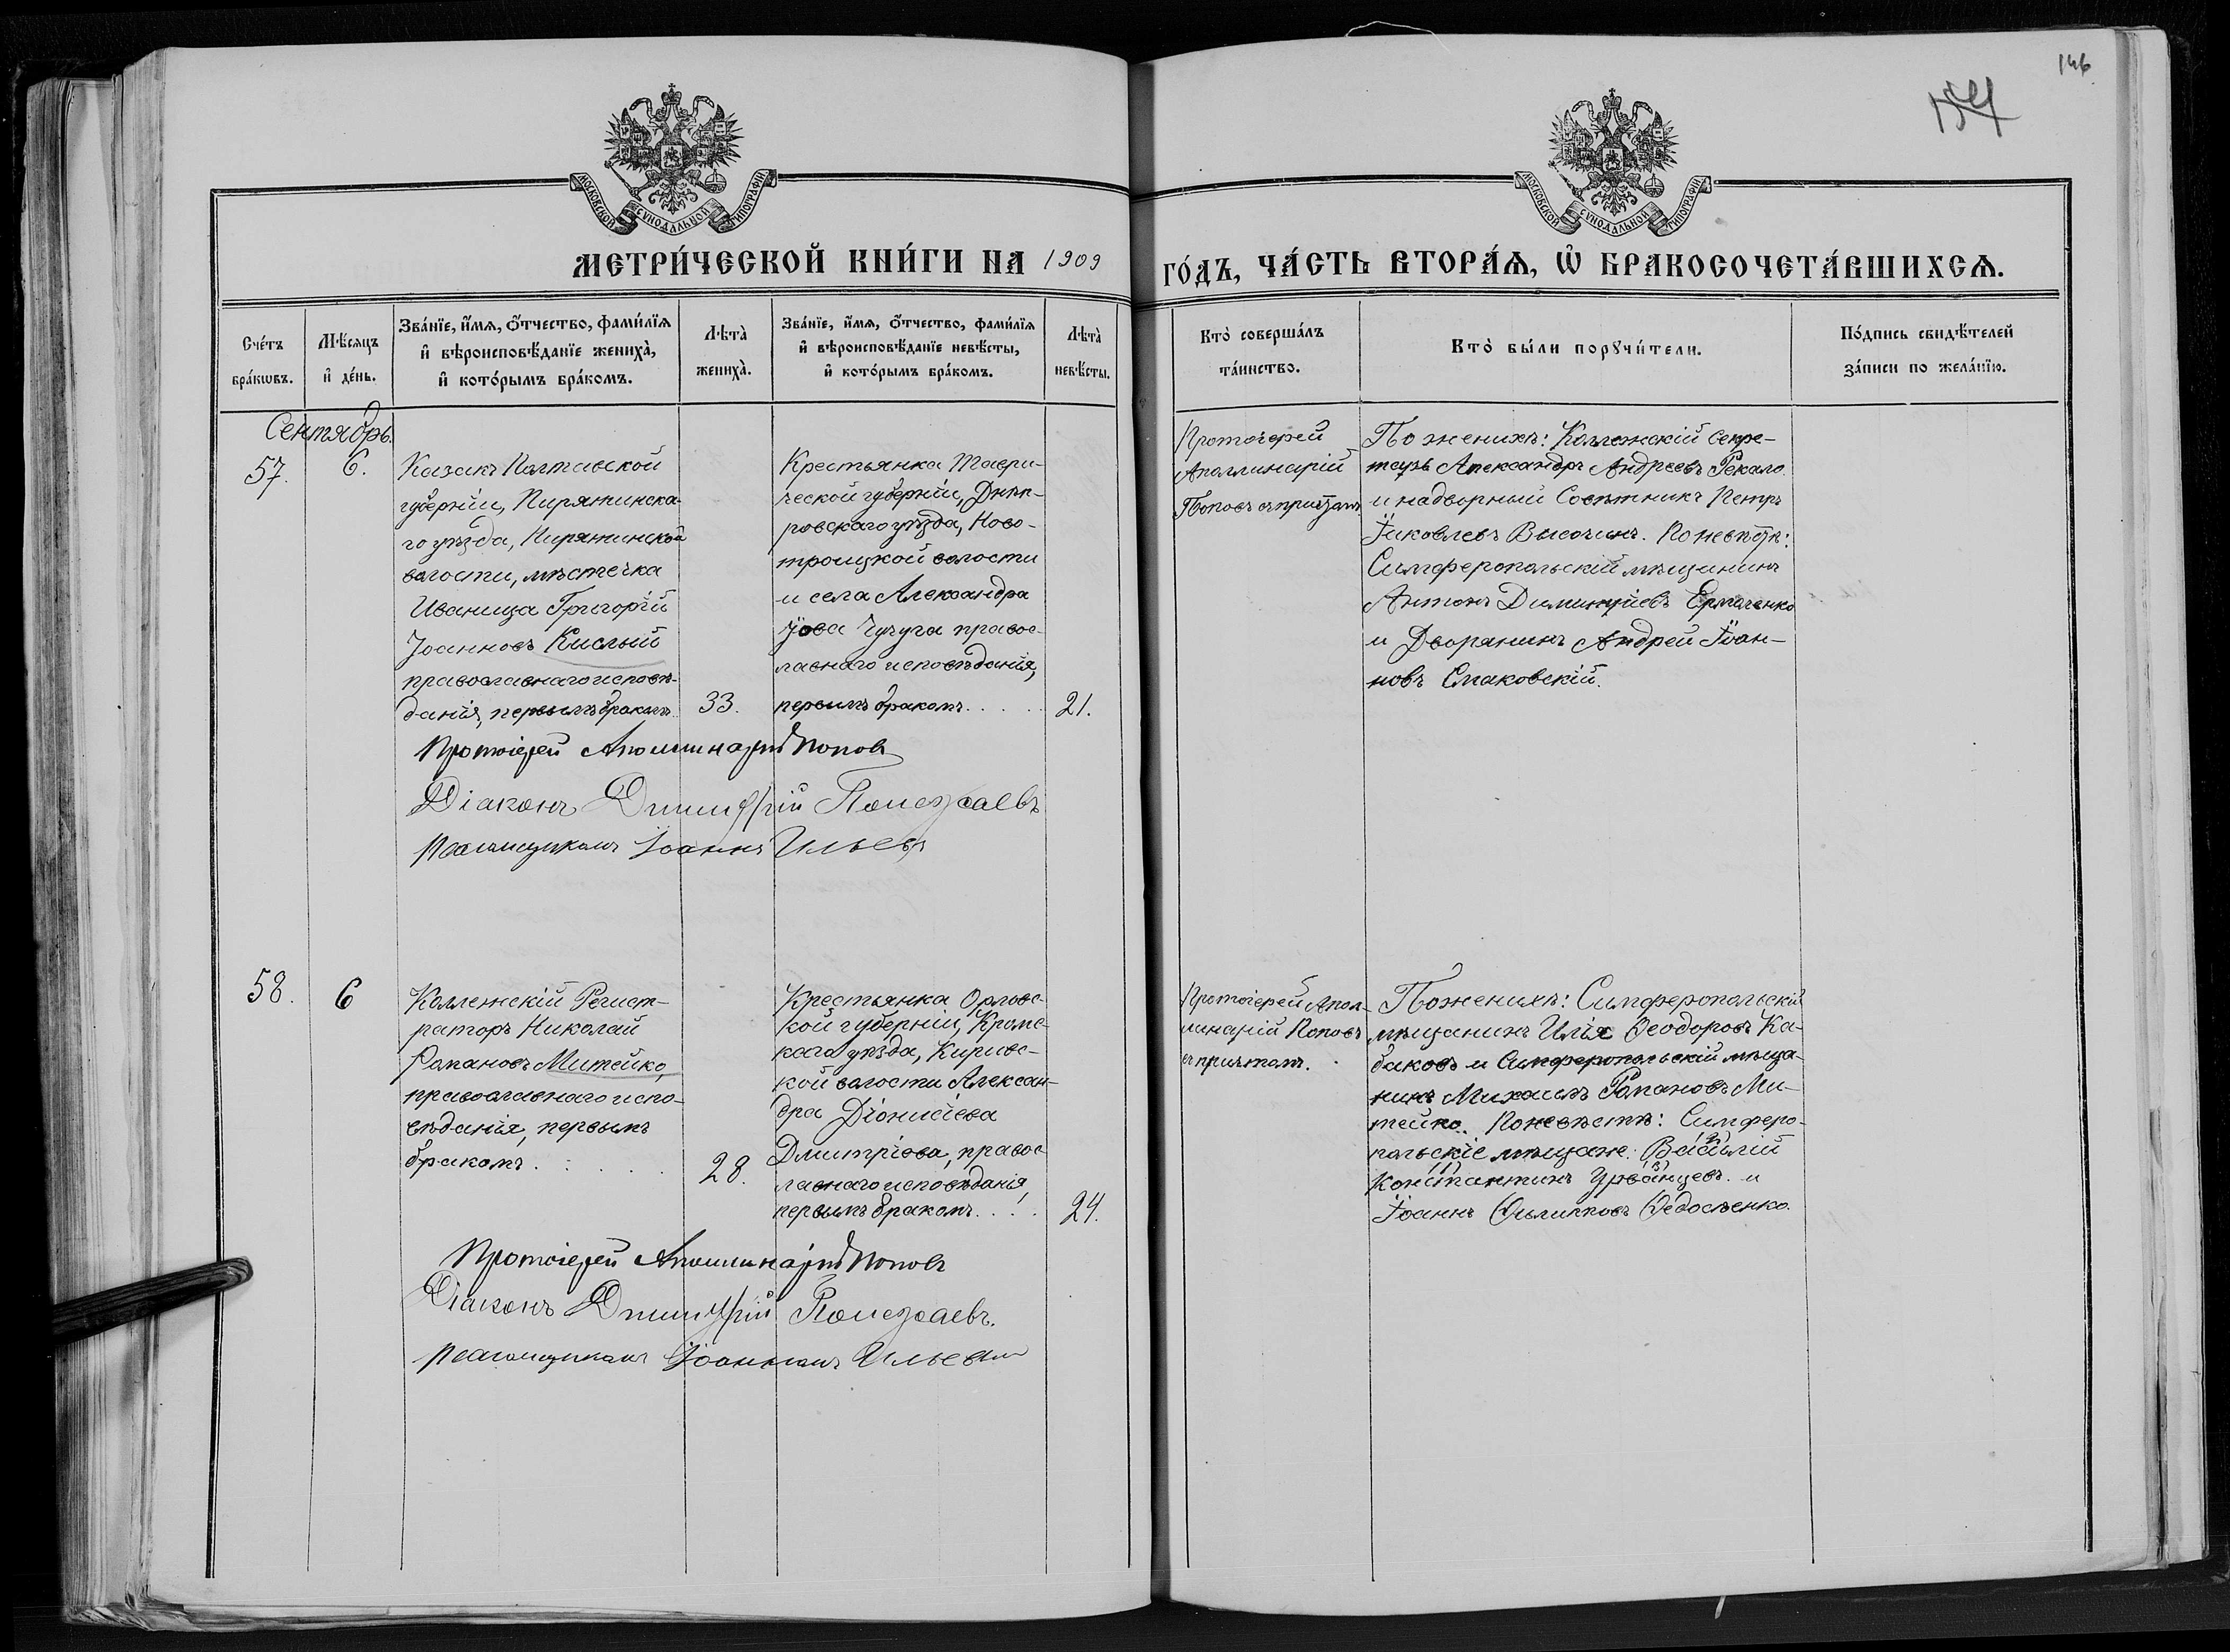 146
154
МОСКОВСКОЙ СѴНОДАЛЬНОЙ ТИПОГРАФІИ
МОСКОВСКОЙ СѴНОДАЛЬНОЙ ТИПОГРАФІИ
МЕТРИ́ЧЕСКОЙ КНИ́ГИ НА 1909
ГО́ДЪ, ЧА́СТЬ ВТОРА́Ѧ, Ѽ БРАКОСОЧЕТА́ВШИХСѦ.
Сче́тъ
бра́кωвъ.
Мѣ́сѧцъ
и҆ де́нь.
Зва́нїе, и҆́мѧ, ѻ҆́тчество, фами́лїѧ
и҆ вѣроисповѣ́данїе жениха̀,
и҆ кото́рымъ бра́комъ.
Лѣ́та̀
жениха̀.
Зва́нїе, и҆́мѧ, ѻ҆́тчество, фами́лїѧ
и҆ вѣроисповѣ́данїе невѣ́сты,
и҆ кото́рымъ бра́комъ.
Лѣ́та̀
невѣ́сты.
Кто̀ соверша́лъ
та́инство.
Кто̀ бы́ли порꙋчи́тели.
По́дпись свидѣ́телей
за́писи по жела́нїю.
Сентябрь.
57.
6.
Казакъ Полтавской
губерніи, Пирятинска-
го уѣзда, Пирятинской
волости, мѣстечка
Иваница Григорій
Іоанновъ Кислый
православнаго исповѣ-
данія, первымъ бракомъ
33.
Крестьянка Таври-
ческой губерніи, Днѣп-
ровскаго уѣзда, Ново-
троицкой волости
и села Александра
Іова Чучуга правос-
лавнаго исповѣданія,
первымъ бракомъ. . . . .
21.
Протоіерей
Аполлинарій
Поповъ съ причтомъ
По женихѣ: Коллежскій Секре-
тарь Александръ Андреевъ Рекало
и надворный Совѣтникъ Петръ
Яковлевъ Высочинъ. По невѣстѣ:
Симферопольскій мѣщанинъ
Антонъ Димитріевъ Ермоленко
и Дворянинъ Андрей Іоан-
новъ Смаковскій.
Протоіерей Аполлинарій Поповъ
Діаконъ Димитрій
Псаломщикъ Іоаннъ Ильевъ
58.
6
Коллежскій Регист-
раторъ Николай
Романовъ Митейко,
православнаго испо-
вѣданія, первымъ
бракомъ. . . . .
28.
Крестьянка Орловс-
кой губерніи, Кромс-
каго уѣзда, Кировс-
кой волости Алексан-
дра Діонисіева
Дмитріева, правос-
лавнаго исповѣданія,
первымъ бракомъ. . . .
24.
Протоіерей Апол-
линарій Поповъ
съ причтомъ.
По женихѣ: Симферопольскій
мѣщанинъ Илія Ѳеодоровъ Ка-
баковъ и Симферопольскій мѣща-
нинъ Михаилъ Романовъ Ми-
тейко. По невѣстѣ: Симферо-
польскіе мѣщане: Василій
Константинъ Урванцевъ и
Іоаннъ Филипповъ Ѳедосѣенко.
Протоіерей Аполлинарій Поповъ
Діаконъ Димитрій
Псаломщикъ Ильевъ